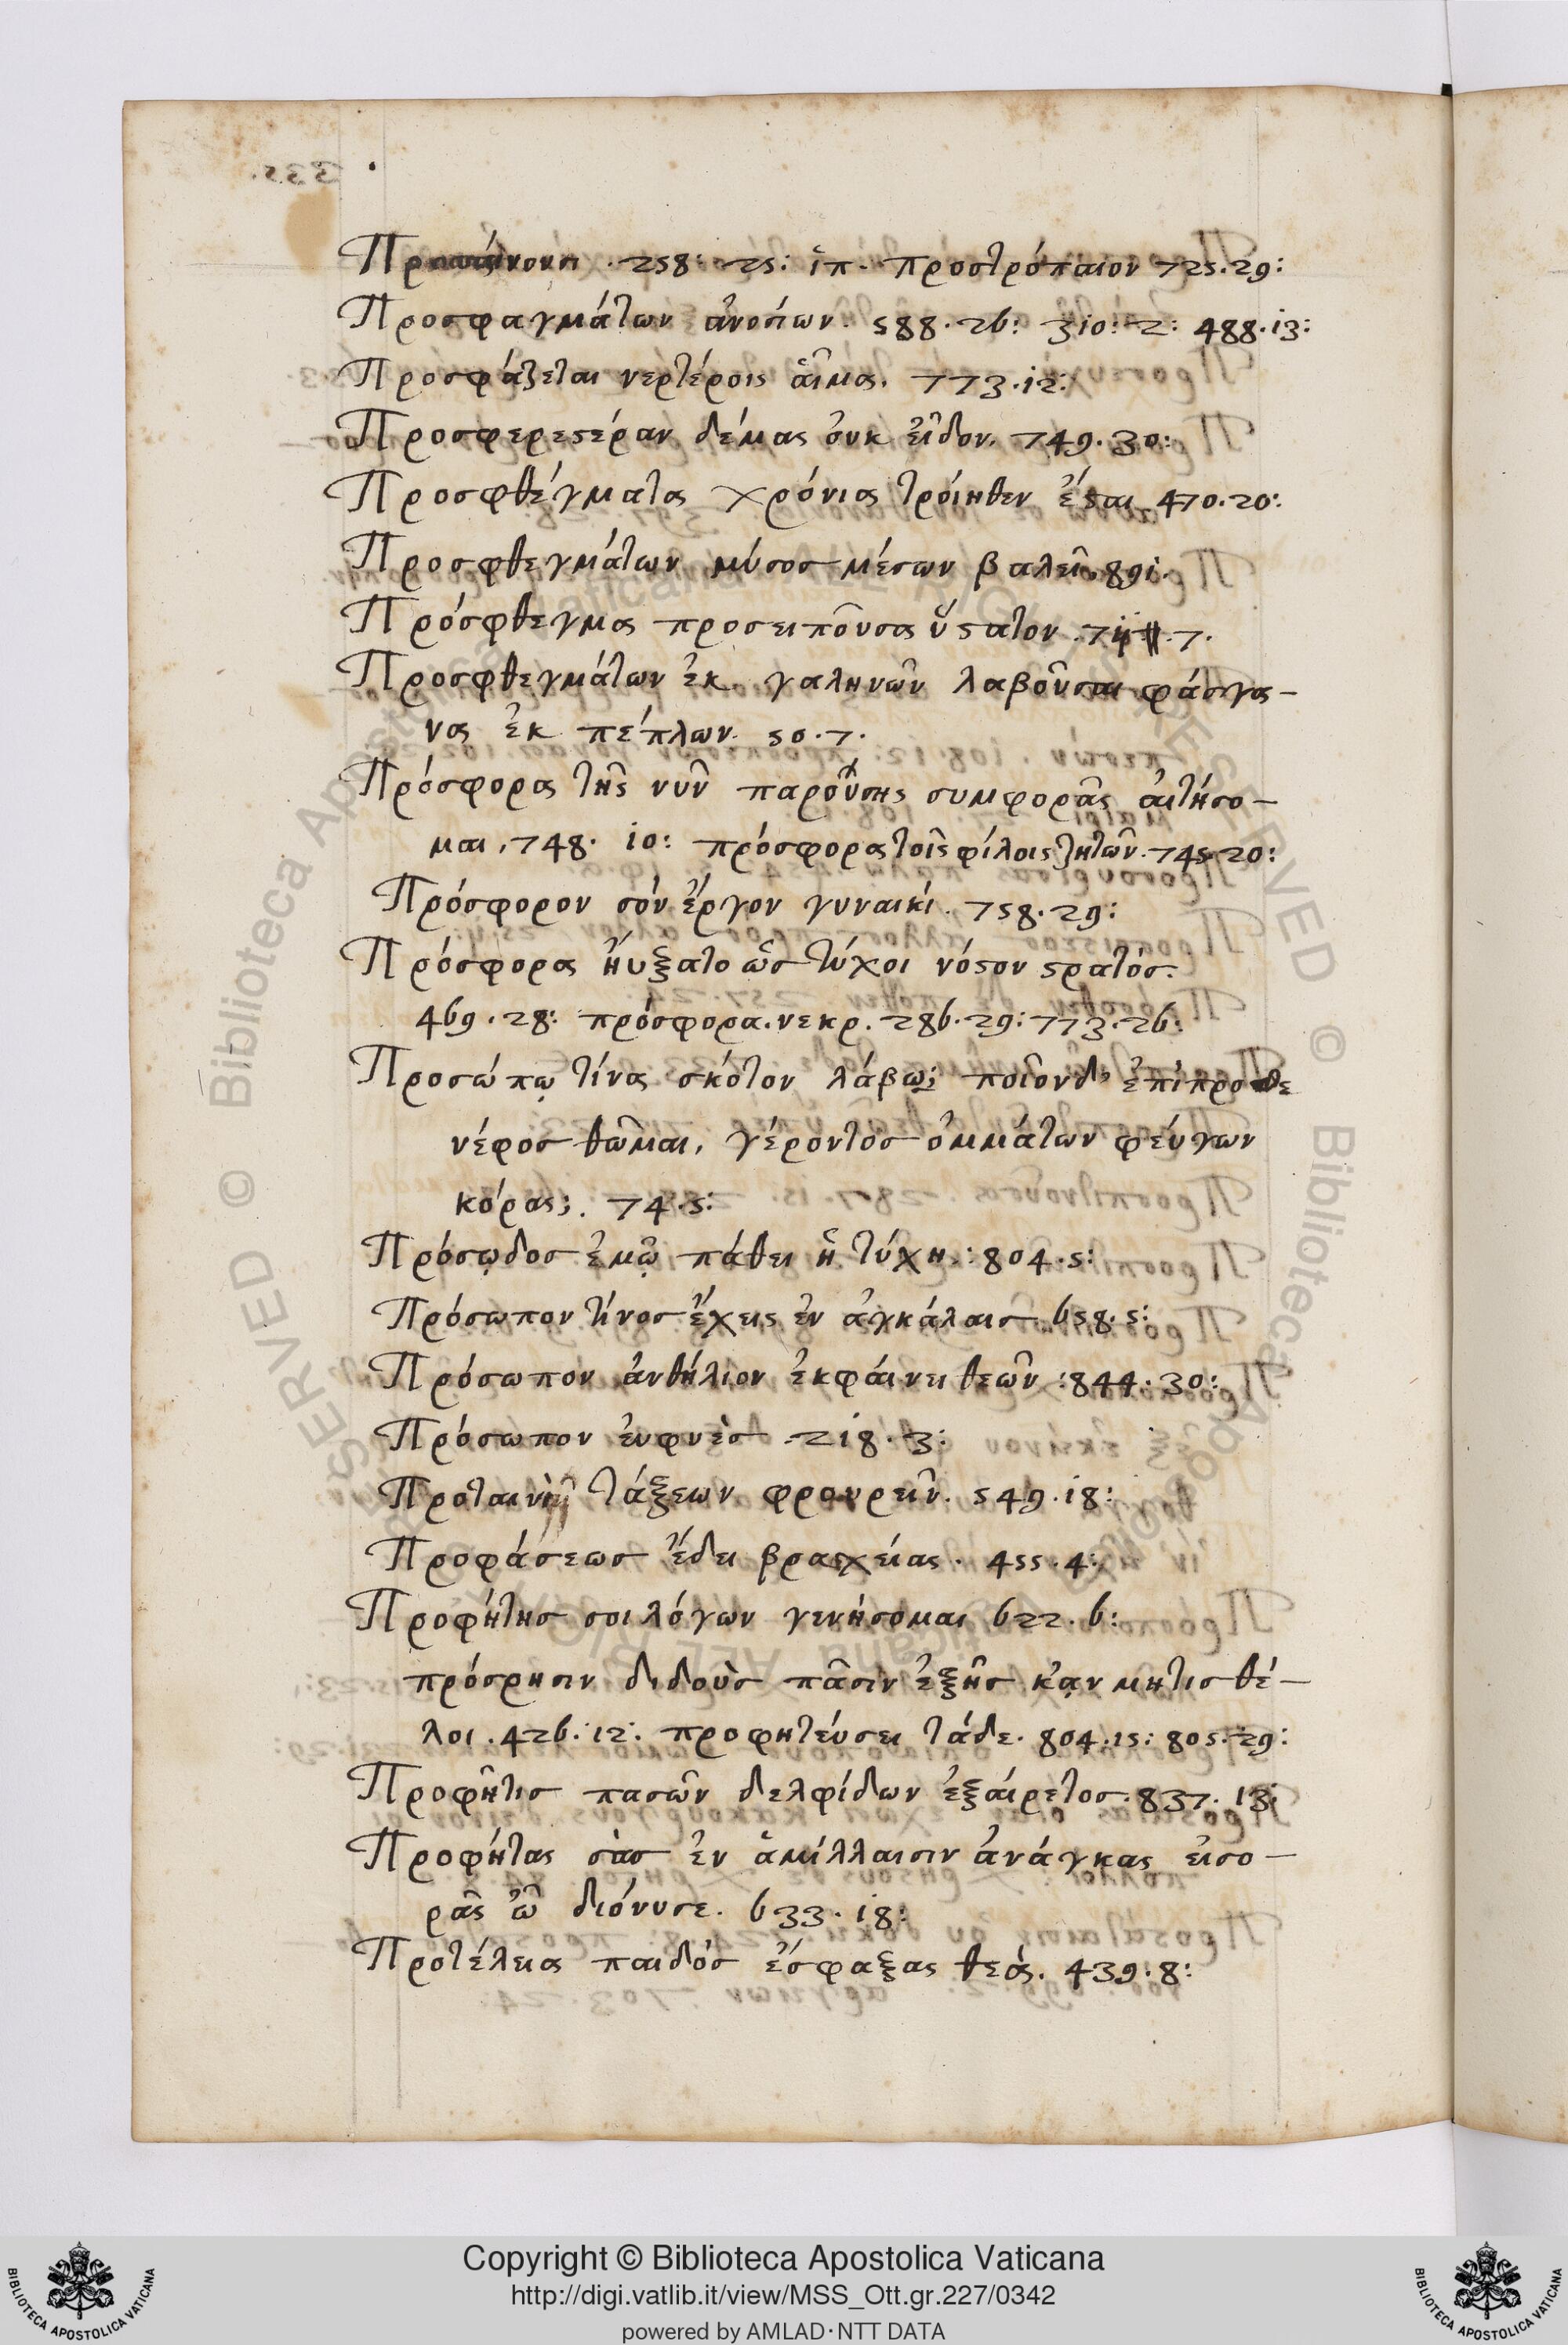 258: 25: ἱπ. προστρόπαιον 725.29:
Προσφαγμάτων ἀνοσίων. 588.26: 310:2: 488.13:
Προσφάζεται νερτέροις ἁῖμα. 773.12:
Προσφερεστέραν δέμας ὀυκ ἐῖδον. 749.30:
Προσφθέγματα χρόνια τρόιηθεν ἔσται 470.20:
Προσφθεγμάτων μύσος μέσων βαλεῖ. 891.
Πρόσφθεγμα προσειποῦσα ὕστατον. .7.
Προσφθεγμάτων ἐκ γαληνῶν λαβοῦσαι φάσγα-
να ἐκ πέπλων. 50.7.
Πρόσφορα τῆς νυν παροῦσης συμφορᾶς ἀιτήσο-
μαι, 748. 10: πρόσφορα τοῖς φίλοις ζητῶν. 745.20:
Πρόσφορον σόν ἔργον γυναικί. 758.29:
Πρόσφορα ἤυξατο ὡς τύχοι νόστον στρατός.
469.28: πρόσφορα. νεκρ. 286.29: 773.26:
Προσώπῳ τίνα σκότον λάβω; ποῖονδ' ἐπίπροσθε
νέφος θῶμαι, γέροντος ὀμμάτων φέυγων
κόρας;. 74.5:
Πρόσῳδος ἐμῶ πάθει ἡ τύχη: 804.5:
Πρόσωπον τίνος ἔχεις ἐν ἀγκάλαις 658.5:
Πρόσωπον ἀνθήλιον ἐκφάινει θεῶν: 844.30:
Πρόσωπον ἐυφυὲς 218.3:
τάξεων φρουρεῖν. 549.18:
Προφάσεως ἔδει βραχείας. 455.4:
Προφήτης σοι λόγων γενήσομαι 622.6:
πρόσρησιν διδοὺς πᾶσιν ἑξῆς κᾳν μητις θέ-
λοι. 426.12: προφητέυσει τάδε. 804.15: 805.29:
Προφῆτις πασῶν δελφίδων ἐξάιρετος. 837. 13:
Προφήτας σὰς ἐν ἁμίλλαισιν ἀνάγκας ἐισο-
ρᾶς ὦ διόνυσε. 633.18:
Προτέλεια παιδὸς ἔσφαξας θεᾷ. 439.8:
Copyright © Biblioteca Apostolica Vaticana
http://digi.vatlib.it/view/MSS_Ott.gr.227/0342
powered by AMLAD·NTT DATA